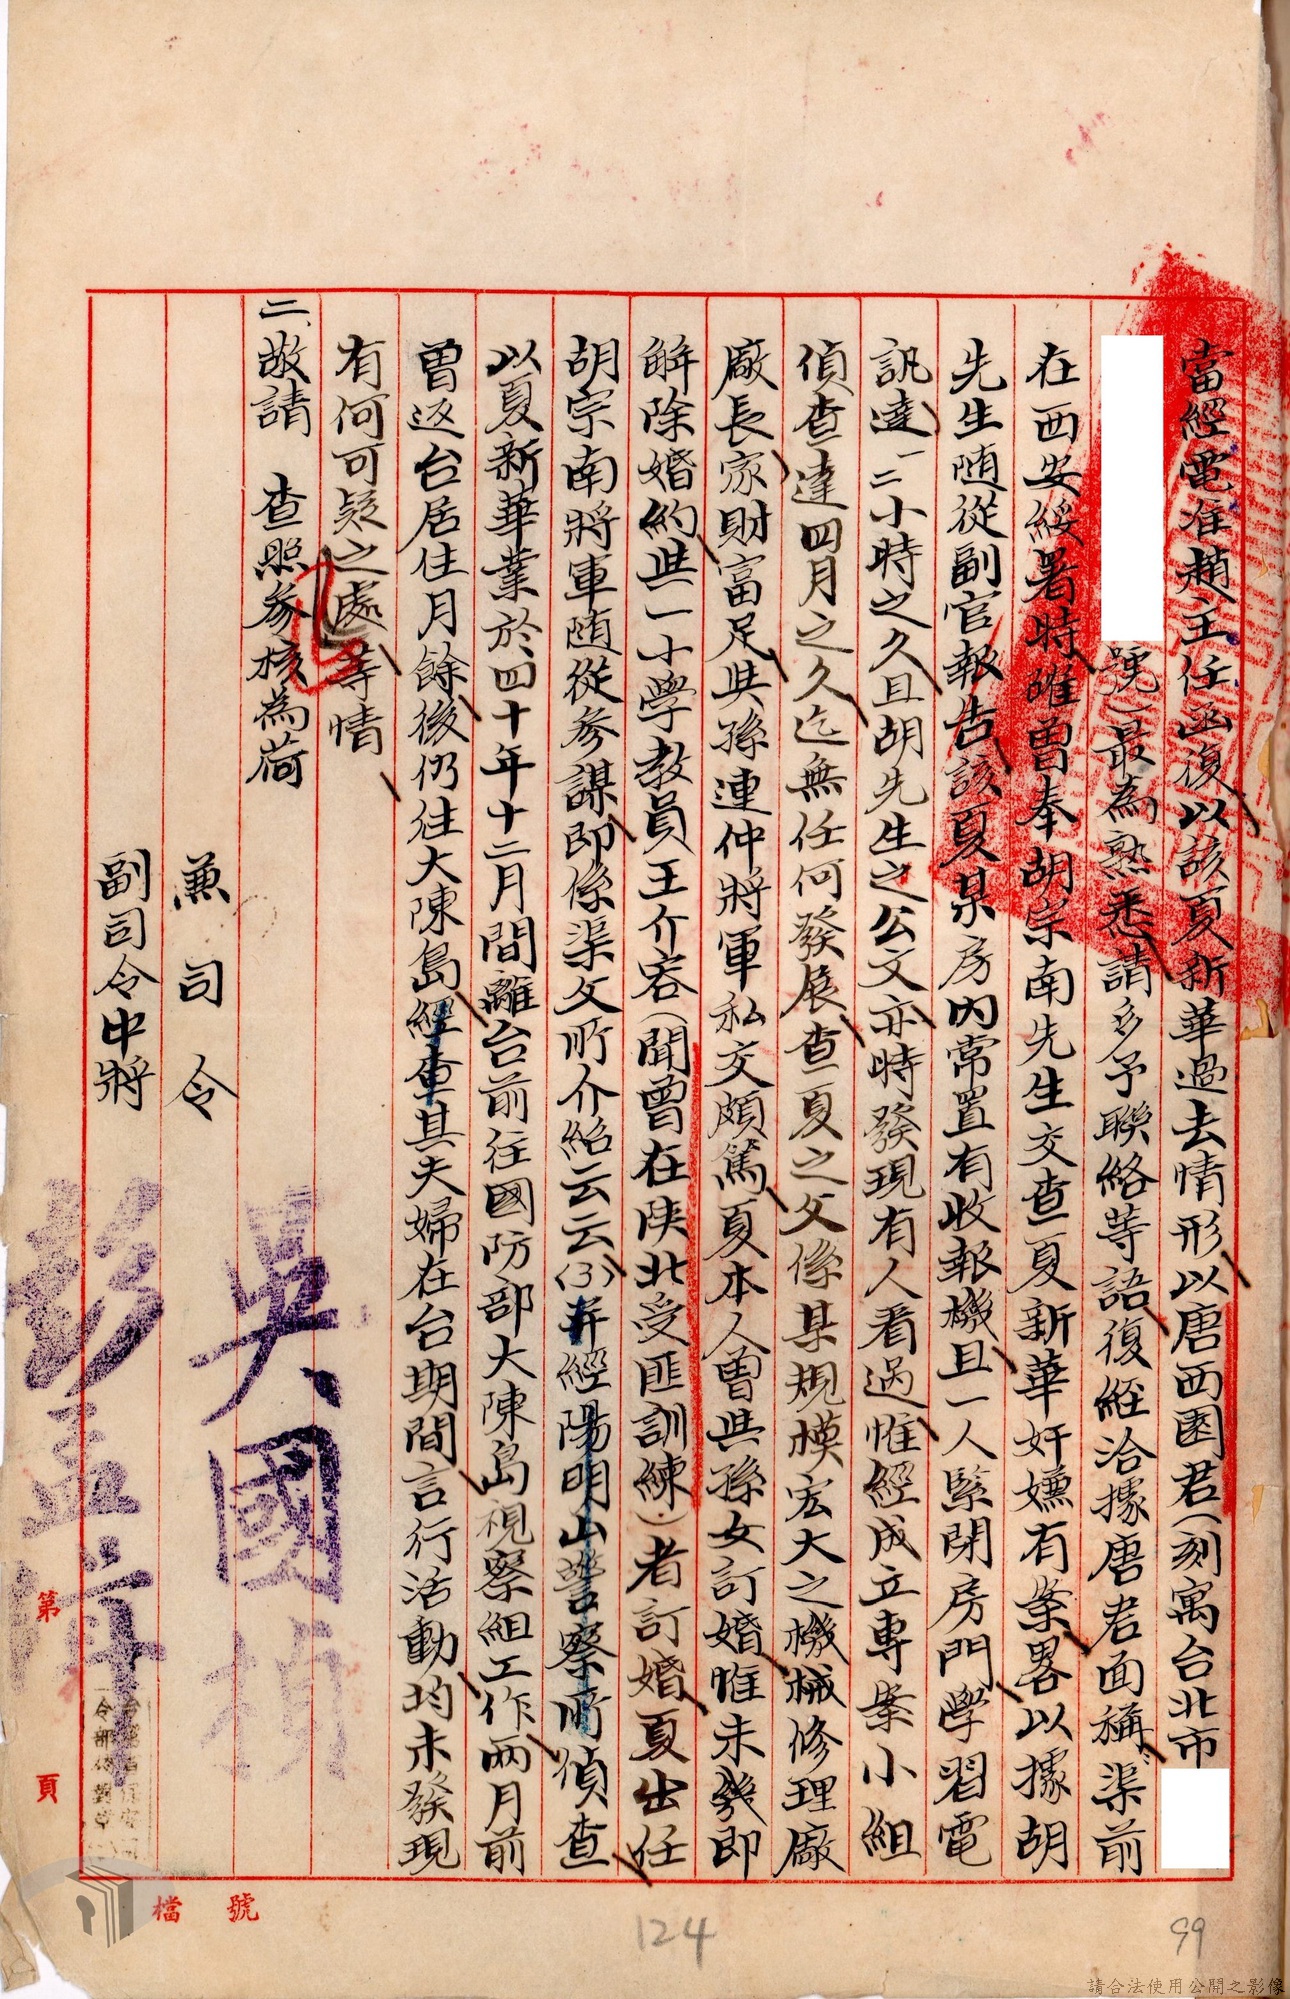 當經電准趙主任函復以該夏新華過去情形以唐西園君（刻寓台北市
號）最為熟悉請多予聯絡等語復經洽據唐君面稱渠前
在西安綏署時確曾奉胡宗南先生交查夏新華奸嫌有案畧以據胡
先生隨從副官報告該夏某房內常置有收報機且一人緊閉房門學習電
訊達一二小時之久且胡先生之公文亦時發現有人看過惟經成立專案小組
偵查達四月之久迄無任何發展查夏之父係某規模宏大之機械修理廠
廠長家財富足與孫連仲將軍私交頗篤夏本人曾與孫女訂婚惟未幾即
解除婚約與一小學教員王介容（聞曾在陝北受匪訓練）者訂婚夏出任
胡宗南將軍隨從參謀即係渠父所介紹云云(3)并經陽明山警察所偵查
以夏新華業於四十年十二月間離台前往國防部大陳島視察組工作兩月前
曾返台居住月餘後仍往大陳島經查其夫婦在台期間言行活動均未發現
有何可疑之處等情
二、敬請　查照參核為荷
兼司令　吳國楨
副司令中將　彭孟緝
第　頁
檔　號
124
99
請合法使用公開之影像